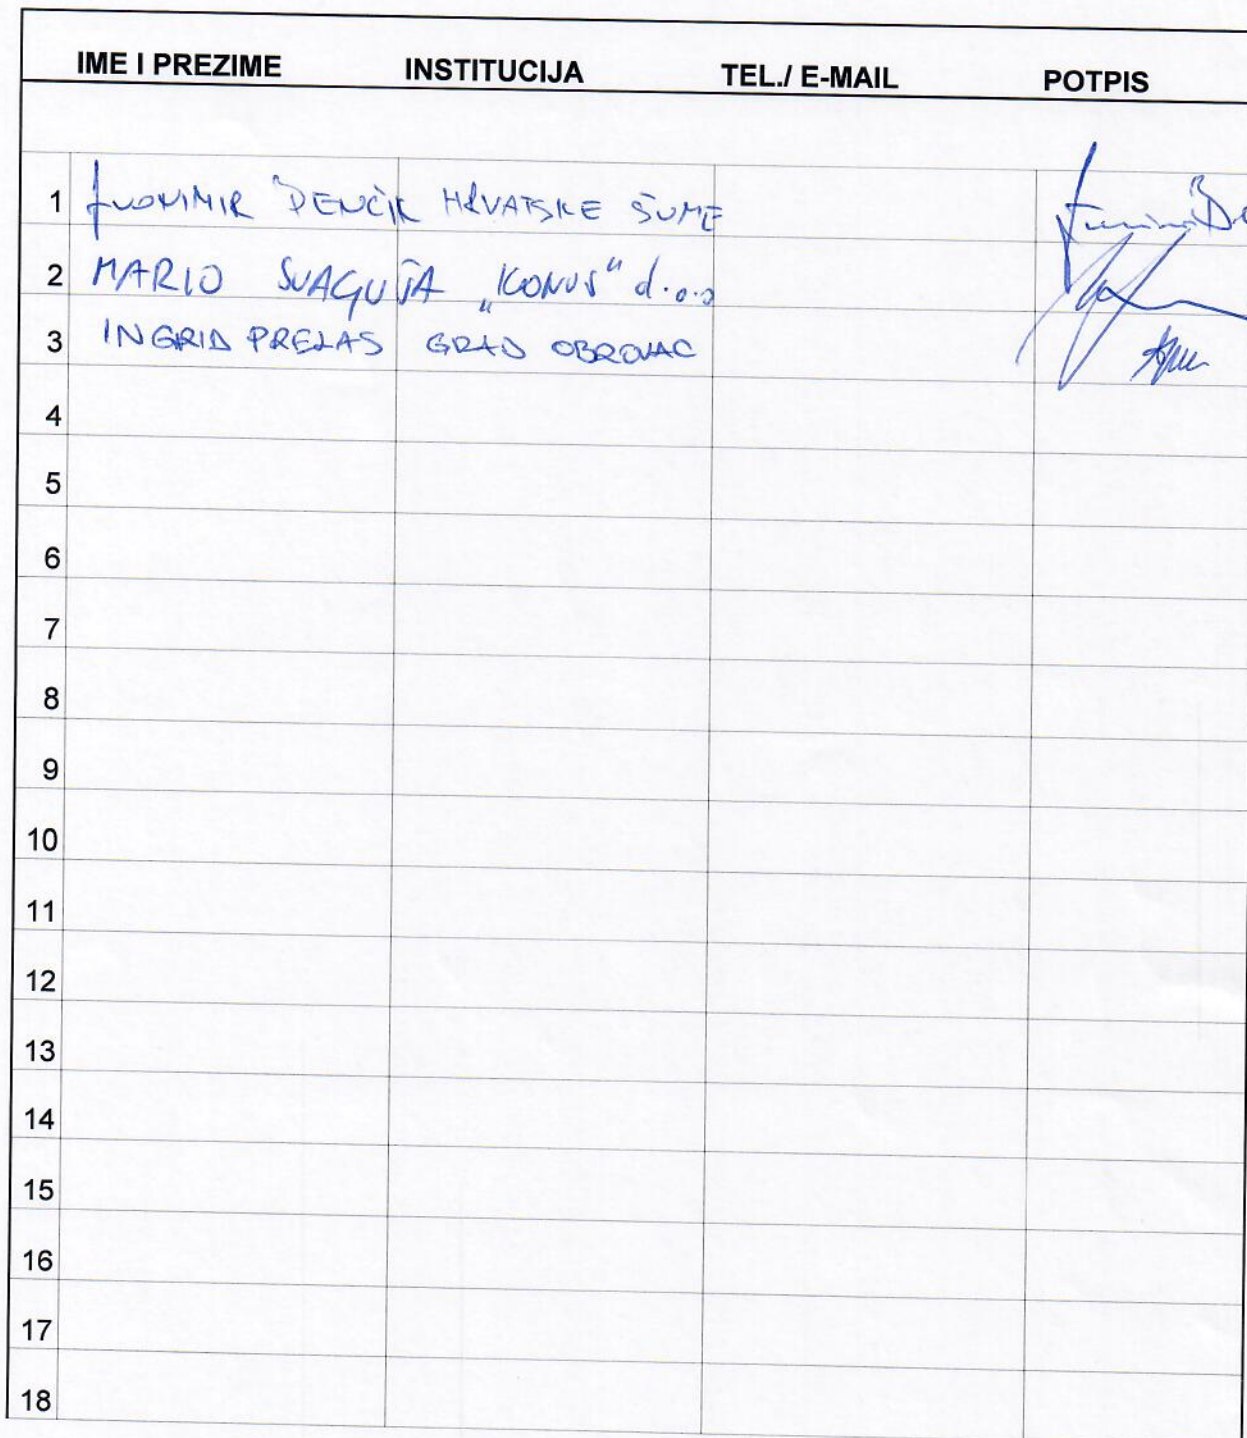 IME I PREZIME INSTITUCIJA TEL./ E-MAIL POTPIS
1 HRVATSKE ŠUME
2 MARIO "KONUS" d.o.o
3 INGRID PRELAS GRAD OBROVAC
4
5
6
7
8
9
10
11
12
13
14
15
16
17
18